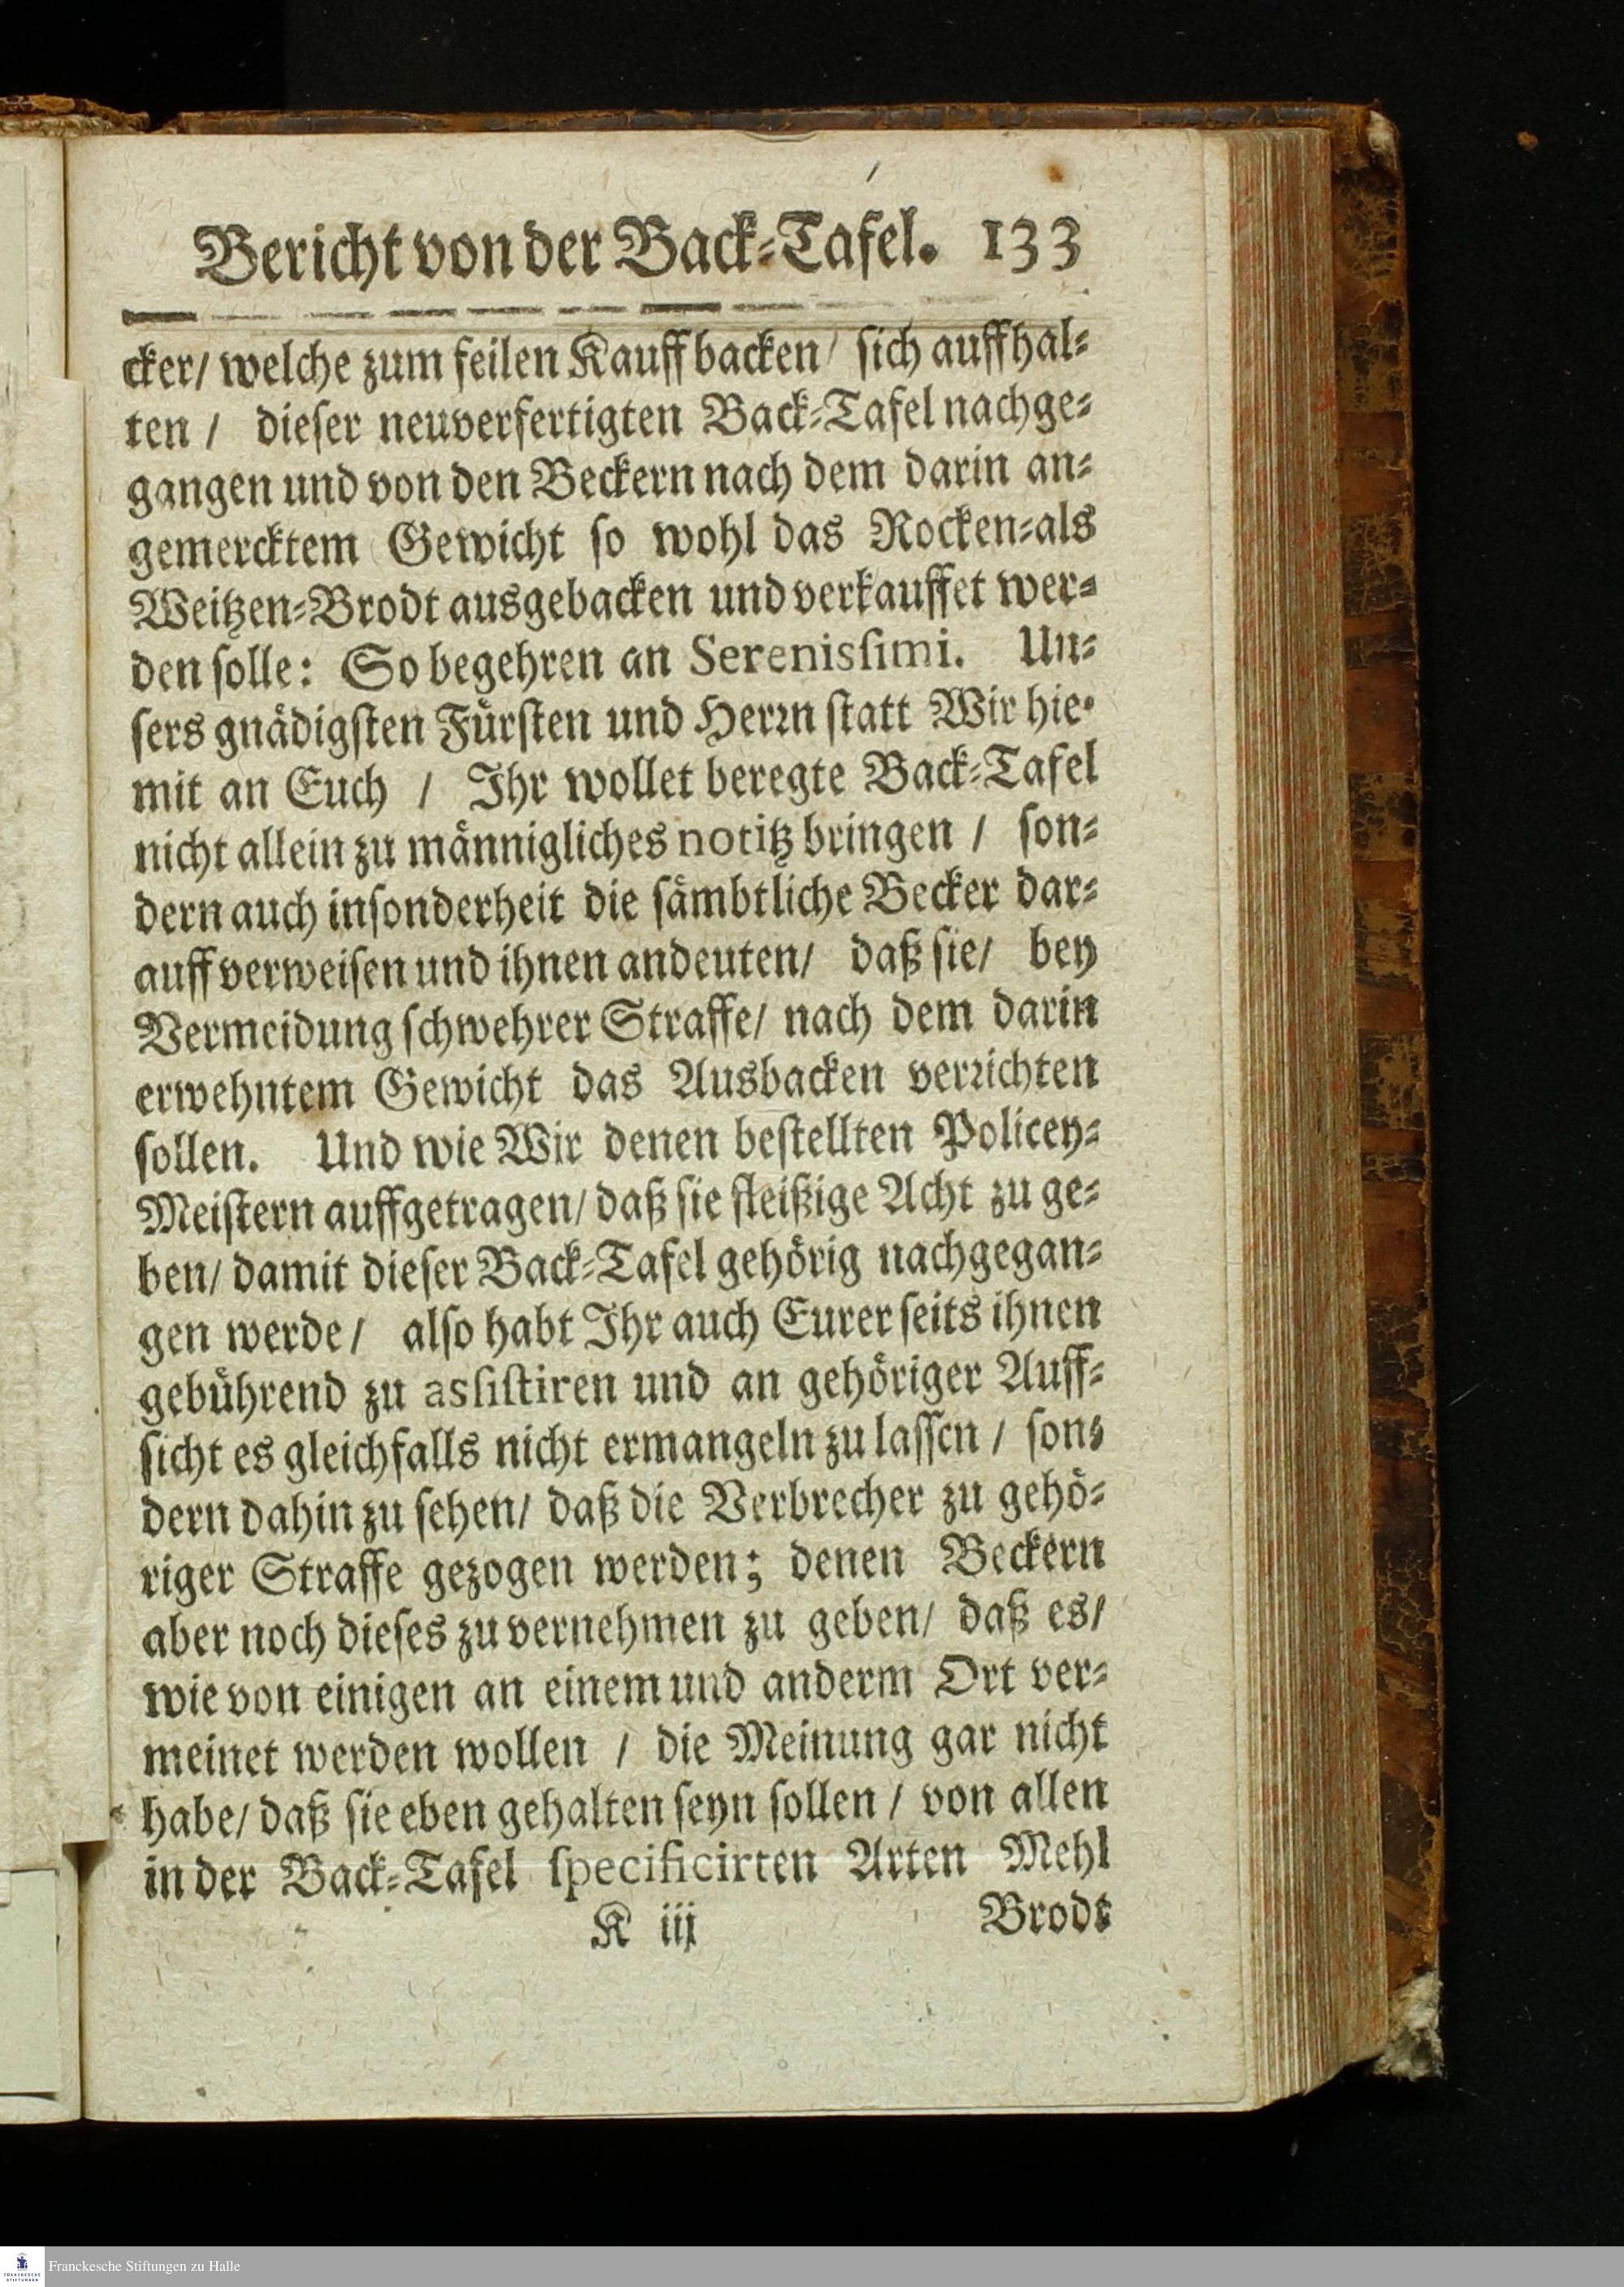 Bericht von der Back-Tafel. 133
cker/ welche zum feilen Kauff backen/ sich auffhal-
ten / dieser neuverfertigten Back-Tafel nachge-
gangen und von den Beckern nach dem darin an-
gemercktem Gewicht so wohl das Rocken-als
Weitzen-Brodt ausgebacken und verkauffet wer-
den solle: So begehren an Serenissimi. Un-
sers gnädigsten Fürsten und Herrn statt Wir hie-
mit an Euch / Ihr wollet beregte Back-Tafel
nicht allein zu männigliches notitz bringen / son-
dern auch insonderheit die sämbtliche Becker dar-
auff verweisen und ihnen andeuten/ daß sie/ bey
Vermeidung schwehrer Straffe/ nach dem darin
erwehntem Gewicht das Ausbacken verrichten
sollen. Und wie Wir denen bestellten Policey-
Meistern auffgetragen/ daß sie fleißige Acht zu ge-
ben/ damit dieser Back-Tafel gehörig nachgegan-
gen werde/ also habt Ihr auch Eurer seits ihnen
gebührend zu assistiren und an gehöriger Auff-
sicht es gleichfalls nicht ermangeln zu lassen / son-
dern dahin zu sehen/ daß die Verbrecher zu gehö-
riger Straffe gezogen werden; denen Beckern
aber noch dieses zu vernehmen zu geben/ daß es/
wie von einigen an einem und anderm Ort ver-
meinet werden wollen / die Meinung gar nicht
habe/ daß sie eben gehalten seyn sollen / von allen
in der Back-Tafel specificirten Arten Mehl
K iij Brodt
Franckesche Stiftungen zu Halle
FRANCKESCHE
STIFTUNGEN